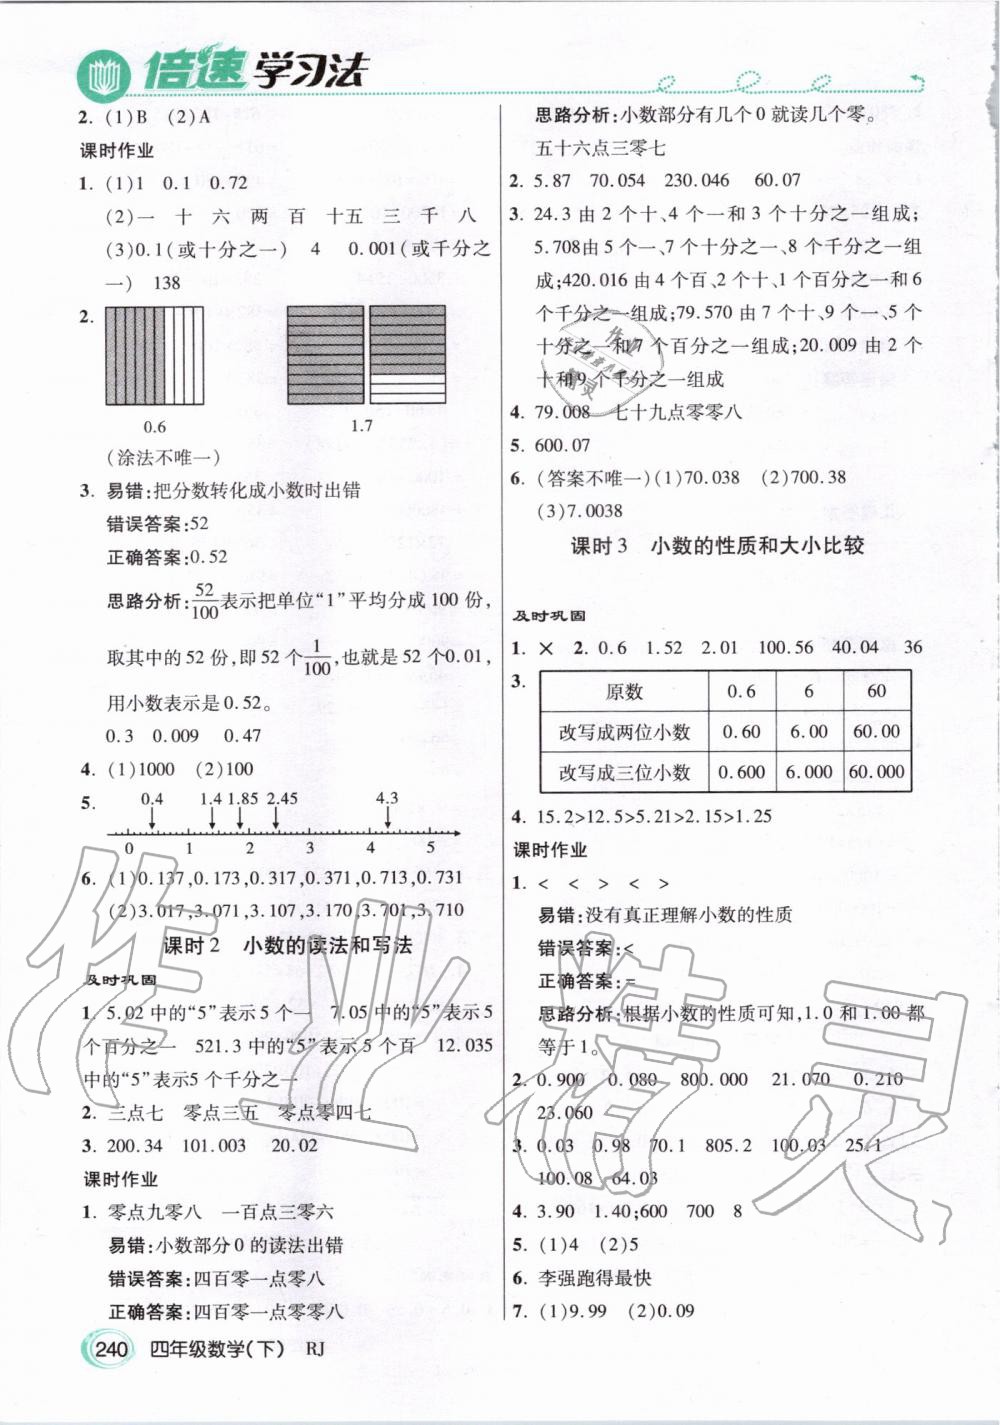 倍速学习法
2. (1)B (2)A
课时作业
1. (1)1 0.1 0.72
(2)一 十 六 两 百 十五 三 千 八
(3)0.1(或十分之一) 4 0.001(或千分之
一) 138
2.
0.6 1.7
(涂法不唯一)
3. 易错:把分数转化成小数时出错
错误答案:52
正确答案:0.52
思路分析:52/100表示把单位“1”平均分成100份,
取其中的52份,即52个1/100,也就是52个0.01,
用小数表示是0.52。
0.3 0.009 0.47
4. (1)1000 (2)100
5. 0.4 1.4 1.85 2.45 4.3
0 1 2 3 4 5
6. (1)0.137,0.173,0.317,0.371,0.713,0.731
(2)3.017,3.071,3.107,3.170,3.701,3.710
课时2 小数的读法和写法
及时巩固
1. 5.02中的“5”表示5个一 7.05中的“5”表示5
个百分之一 521.3中的“5”表示5个百 12.035
中的“5”表示5个千分之一
2. 三点七 零点三五 零点零四七
3. 200.34 101.003 20.02
课时作业
1. 零点九零八 一百点三零六
易错:小数部分0的读法出错
错误答案:四百零一点零八
正确答案:四百零一点零零八
240 四年级数学(下) RJ
思路分析:小数部分有几个0就读几个零。
五十六点三零七
2. 5.87 70.054 230.046 60.07
3. 24.3由2个十、4个一和3个十分之一组成;
5.708由5个一、7个十分之一、8个千分之一组
成;420.016由4个百、2个十、1个百分之一和6
个千分之一组成;79.570由7个十、9个一、5个
十分之一和7个百分之一组成;20.009由2个
十和9个千分之一组成
4. 79.008 七十九点零零八
5. 600.07
6. (答案不唯一)(1)70.038 (2)700.38
(3)7.0038
课时3 小数的性质和大小比较
及时巩固
1. × 2. 0.6 1.52 2.01 100.56 40.04 36
3. 原数 0.6 6 60
改写成两位小数 0.60 6.00 60.00
改写成三位小数 0.600 6.000 60.000
4. 15.2>12.5>5.21>2.15>1.25
课时作业
1. < < > < >
易错:没有真正理解小数的性质
错误答案:<
正确答案:=
思路分析:根据小数的性质可知,1.0和1.00都
等于1。
2. 0.900 0.080 800.000 21.070 0.210
23.060
3. 0.03 0.98 70.1 805.2 100.03 25.1
100.08 64.03
4. 3.90 1.40;600 700 8
5. (1)4 (2)5
6. 李强跑得最快
7. (1)9.99 (2)0.09
作业精灵